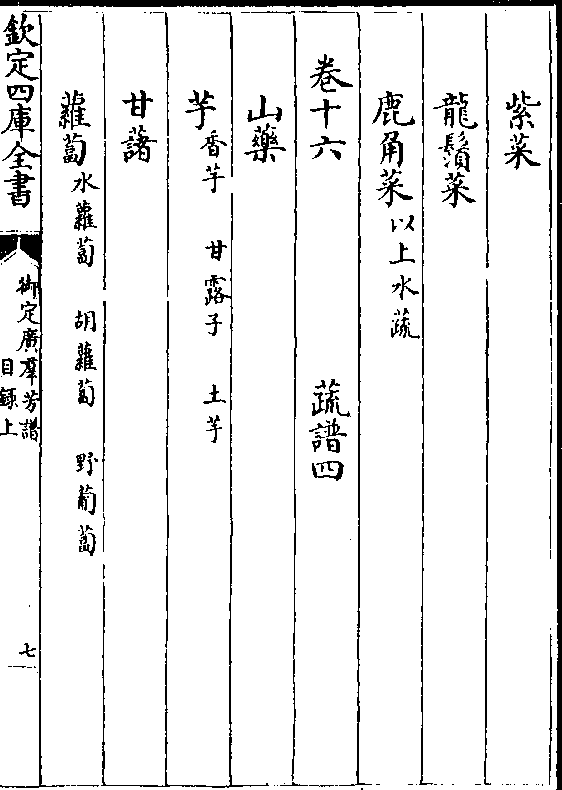 紫菜
龍鬚菜
鹿角菜以上水蔬
卷十六　蔬譜四
山藥
芋香芋　甘露子　土芋
甘藷
蘿蔔水蘿蔔　胡蘿蔔　野蔔蔔
欽定四庫全書
御定廣羣芳譜
目録上
七